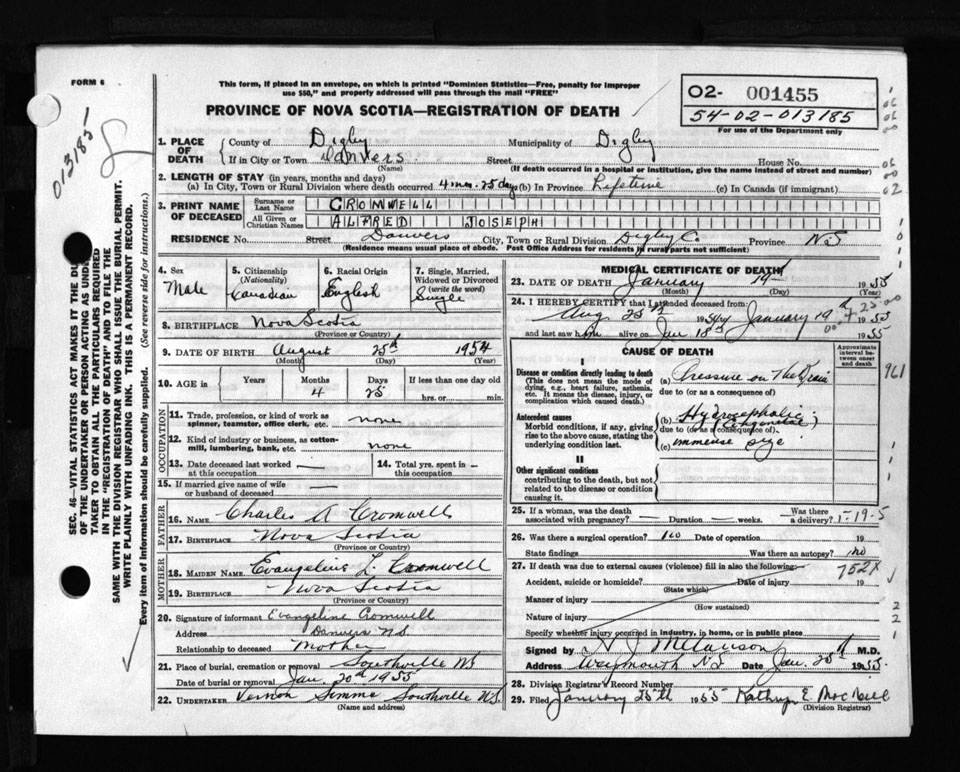 FORM 6
This form, if placed in an envelope, on which is printed "Dominion Statistics—Free, penalty for improper
use $50," and properly addressed will pass through the mail "FREE"
PROVINCE OF NOVA SCOTIA—REGISTRATION OF DEATH
O2- 001455
54-02-013185
For use of the Department only
013185
SEC. 46—VITAL STATISTICS ACT MAKES IT THE
OF THE UNDERTAKER OR PERSON ACTING AS
TAKER TO OBTAIN ALL THE PARTICULARS REQUIRED
IN THE "REGISTRATION OF DEATH" AND TO FILE THE
SAME WITH THE DIVISION REGISTRAR WHO SHALL ISSUE THE BURIAL PERMIT.
WRITE PLAINLY WITH UNFADING INK. THIS IS A PERMANENT RECORD.
Every item of information should be carefully supplied. (See reverse side for instructions.)
1. PLACE OF DEATH
County of Digby Municipality of Digby
If in City or Town Danvers Street House No.
(Name) (If death occurred in a hospital or institution, give the name instead of street and number)
2. LENGTH OF STAY (in years, months and days)
(a) In City, Town or Rural Division where death occurred 4 mos. 25 days (b) In Province Lifetime (c) In Canada (if immigrant)
3. PRINT NAME OF DECEASED
Surname or Last Name CROMWELL
All Given or Christian Names ALFRED JOSEPH
RESIDENCE No. Street Danvers City, Town or Rural Division Digby Co. Province NS
(Residence means usual place of abode. Post Office Address for residents in rural parts not sufficient)
4. Sex
Male
5. Citizenship
(Nationality)
Canadian
6. Racial Origin
English
7. Single, Married,
Widowed or Divorced
(write the word)
Single
8. BIRTHPLACE Nova Scotia
(Province or Country)
9. DATE OF BIRTH August 25th 1954
(Month) (Day) (Year)
10. AGE in Years Months Days If less than one day old
4 25 hrs. or min.
OCCUPATION
11. Trade, profession, or kind of work as
spinner, teamster, office clerk, etc. none
12. Kind of industry or business, as cotton-
mill, lumbering, bank, etc. none
13. Date deceased last worked
at this occupation —
14. Total yrs. spent in
this occupation —
15. If married give name of wife
or husband of deceased —
FATHER
16. NAME Charles A Cromwell
17. BIRTHPLACE Nova Scotia
(Province or Country)
MOTHER
18. MAIDEN NAME Evangeline L. Cromwell
19. BIRTHPLACE Nova Scotia
(Province or Country)
20. Signature of informant Evangeline Cromwell
Address Danvers N.S.
Relationship to deceased Mother
21. Place of burial, cremation or removal Southville NS
Date of burial or removal Jan. 20th 1955
22. UNDERTAKER Vernon Simms Southville NS.
(Name and address)
MEDICAL CERTIFICATE OF DEATH
23. DATE OF DEATH January 19 1955
(Month) (Day) (Year)
24. I HEREBY CERTIFY that I attended deceased from:
Aug 25th 1954 January 19 1955
and last saw him alive on Jan 18th 1955
CAUSE OF DEATH
Approximate
interval be-
tween onset
and death
I
Disease or condition directly leading to death
(This does not mean the mode of
dying, e.g., heart failure, asthenia,
etc. It means the disease, injury, or
complication which caused death.)
(a) Pressure on The Brain
due to (or as a consequence of)
Antecedent causes
Morbid conditions, if any, giving
rise to the above cause, stating the
underlying condition last.
(b) Hydrocephalic (Congenital)
due to (or as a consequence of)
(c) immense size
II
Other significant conditions
contributing to the death, but not
related to the disease or condition
causing it.
961
25. If a woman, was the death
associated with pregnancy? — Duration — weeks. Was there
a delivery?
1-19-5
26. Was there a surgical operation? no Date of operation 19
State findings Was there an autopsy? no
27. If death was due to external causes (violence) fill in also the following:—
752X
Accident, suicide or homicide? Date of injury 19
(State which)
Manner of injury
(How sustained)
Nature of injury
Specify whether injury occurred in industry, in home, or in public place
Signed by M.D.
Address Weymouth NS Date Jan. 25th 1955.
28. Division Registrar's Record Number
29. Filed January 25th 1955 Kathryn E. MacNeill
(Division Registrar)